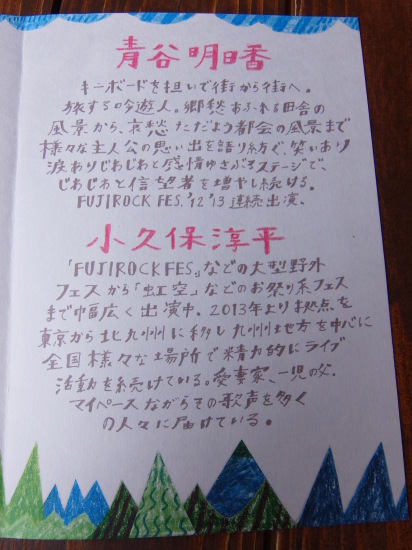 青谷明日香
キーボードを担いで街から街へ。
旅する吟遊人。郷愁あふれる田舎の
風景から、哀愁ただよう都会の風景まで
様々な主人公の思い出を語り紡ぐ、笑いあり
涙ありじわじわと感情ゆさぶるステージで、
じわじわと信望者を増やし続ける。
FUJIROCK FES.'12'13 連続出演。
小久保淳平
「FUJIROCK FES」などの大型野外
フェスから「虹空」などのお祭り系フェス
まで幅広く出演中。2013年より拠点を
東京から北九州に移し九州地方を中心に
全国様々な場所で精力的にライブ
活動を続けている。愛妻家、一児の父。
マイペースながらその歌声を多く
の人々に届けている。